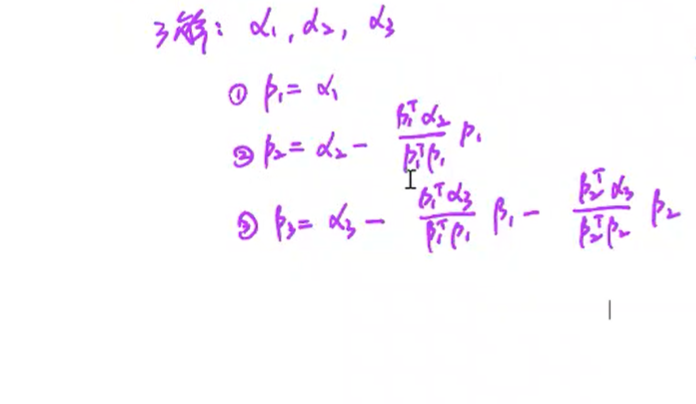 3解: α₁, α₂, α₃
① β₁ = α₁
② β₂ = α₂ − (β₁ᵀα₂)/(β₁ᵀβ₁) β₁
③ β₃ = α₃ − (β₁ᵀα₃)/(β₁ᵀβ₁) β₁ − (β₂ᵀα₃)/(β₂ᵀβ₂) β₂